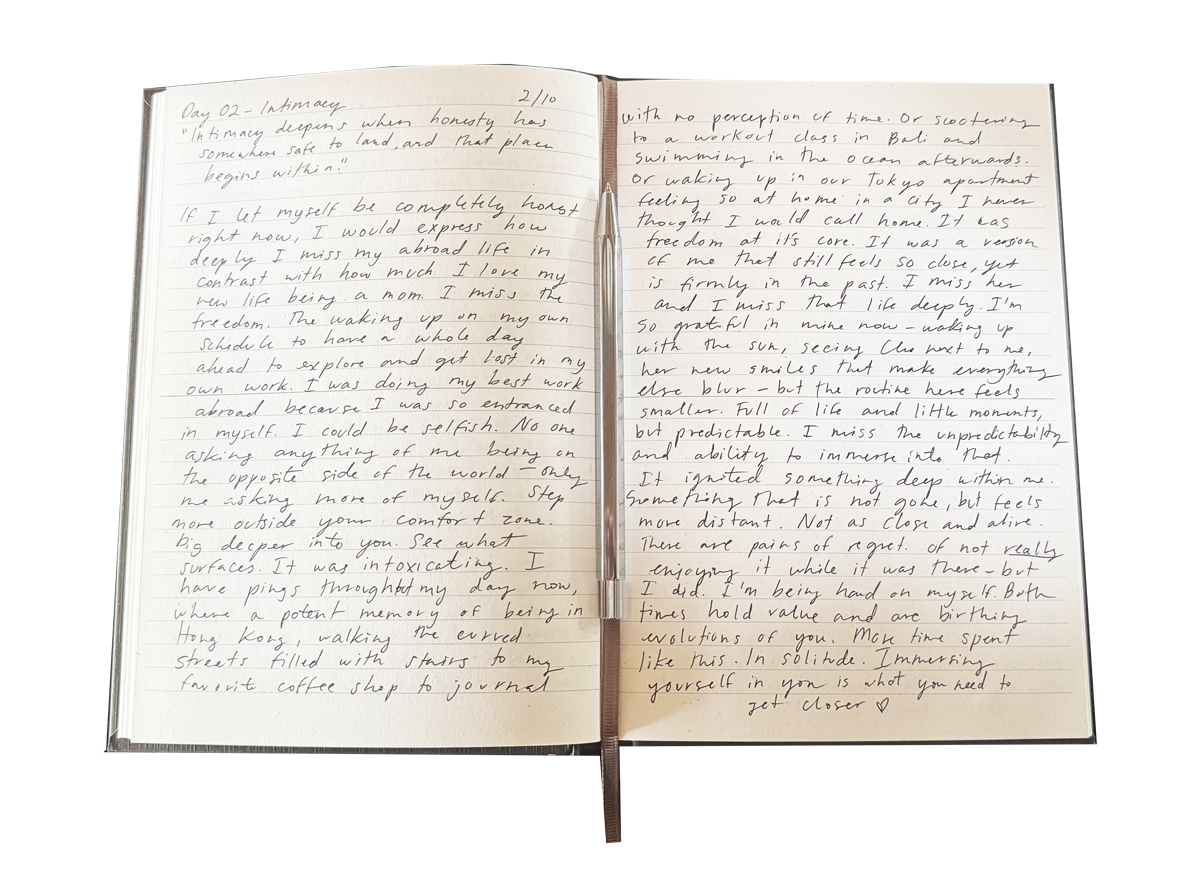 Day 02 - Intimacy 2/10
"Intimacy deepens when honesty has
somewhere safe to land, and that place
begins within."
If I let myself be completely honest
right now, I would express how
deeply I miss my abroad life in
contrast with how much I love my
new life being a mom. I miss the
freedom. The waking up on my own
schedule to have a whole day
ahead to explore and get lost in my
own work. I was doing my best work
abroad because I was so entranced
in myself. I could be selfish. No one
asking anything of me being on
the opposite side of the world - only
me asking more of myself. Step
more outside your comfort zone.
Dig deeper into you. See what
surfaces. It was intoxicating. I
have pings throughout my day now,
where a potent memory of being in
Hong Kong, walking the curved
streets filled with stairs to my
favorite coffee shop to journal
with no perception of time. Or scootering
to a workout class in Bali and
swimming in the ocean afterwards.
Or waking up in our Tokyo apartment
feeling so at home in a city I never
thought I would call home. It was
freedom at it's core. It was a version
of me that still feels so close, yet
is firmly in the past. I miss her
and I miss that life deeply. I'm
so grateful in mine now - waking up
with the sun, seeing next to me,
her new smiles that make everything
else blur - but the routine here feels
smaller. Full of life and little moments,
but predictable. I miss the unpredictability
and ability to immerse into that.
It ignited something deep within me.
Something that is not gone, but feels
more distant. Not as close and alive.
There are pains of regret. of not really
enjoying it while it was there - but
I did. I'm being hard on myself. Both
times hold value and are birthing
evolutions of you. More time spent
like this. In solitude. Immersing
yourself in you is what you need to
get closer ♡